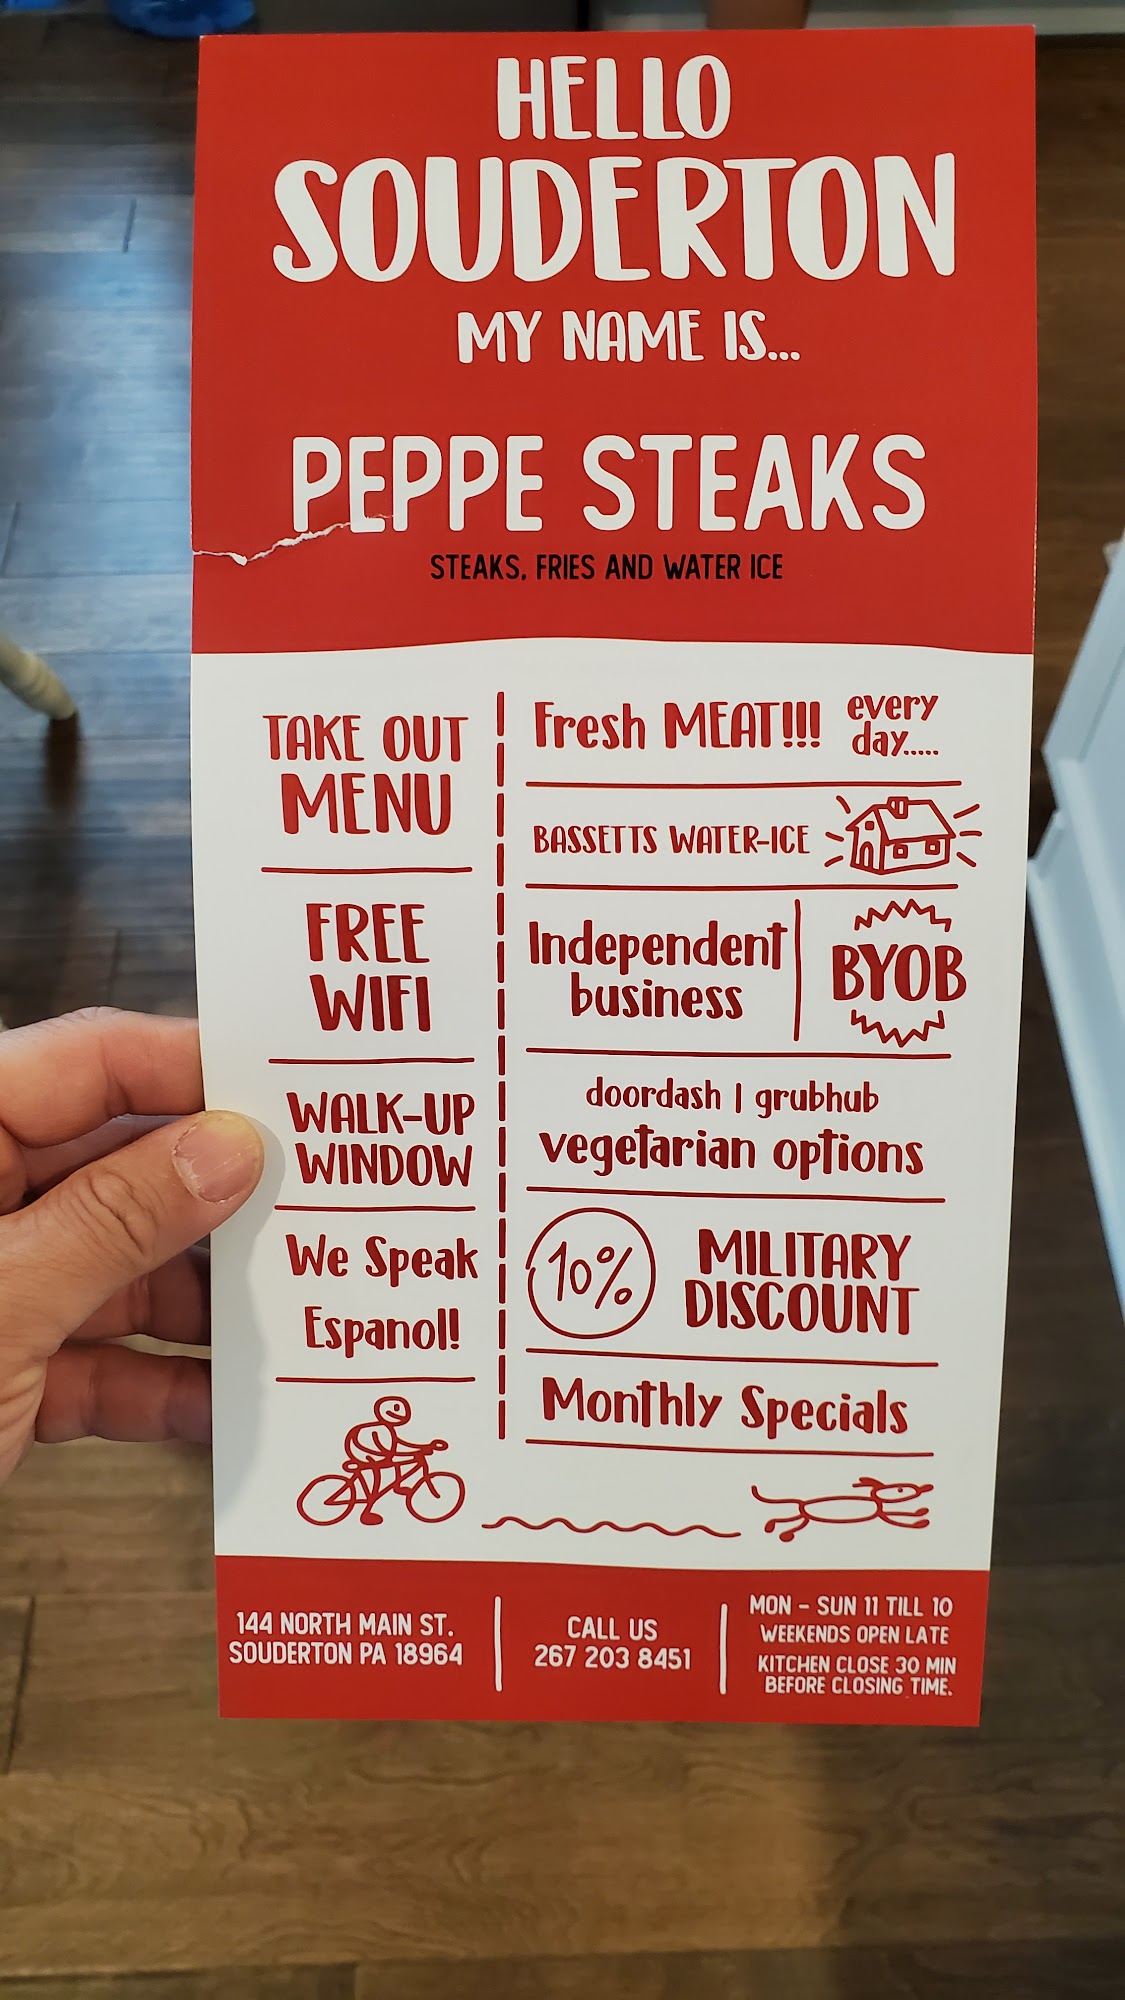 HELLO
SOUDERTON
MY NAME IS...
PEPPE STEAKS
STEAKS, FRIES AND WATER ICE
TAKE OUT
MENU
FREE
WIFI
WALK-UP
WINDOW
We Speak
Espanol!
Fresh MEAT!!! every
day.....
BASSETTS WATER-ICE
Independent
business
BYOB
doordash | grubhub
vegetarian options
10% MILITARY
DISCOUNT
Monthly Specials
144 NORTH MAIN ST.
SOUDERTON PA 18964
CALL US
267 203 8451
MON - SUN 11 TILL 10
WEEKENDS OPEN LATE
KITCHEN CLOSE 30 MIN
BEFORE CLOSING TIME.